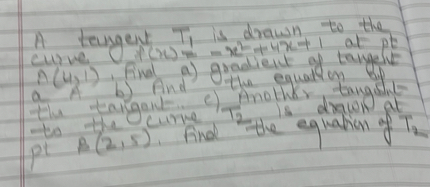 A tangent T1 is drawn to the
curve f(x) = -x²+4x+1 at pt
A(4,1), find a) gradient of tangent
a A b) And the equation of
the tangent. c) Another tangent
to the curve T2 is drawn at
pt B(2,5). Find the equation of T2